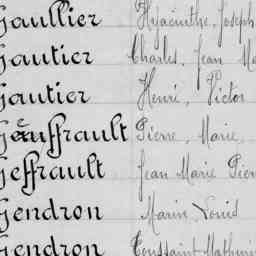 Gaullier Hyacinthe, Joseph
Gautier Charles, Jean Ma
Gautier Henri, Victor
Geauffrault Pierre, Marie,
Geffrault Jean Marie Pier
Gendron Marin Louis
Gendron Toussaint Mathurin